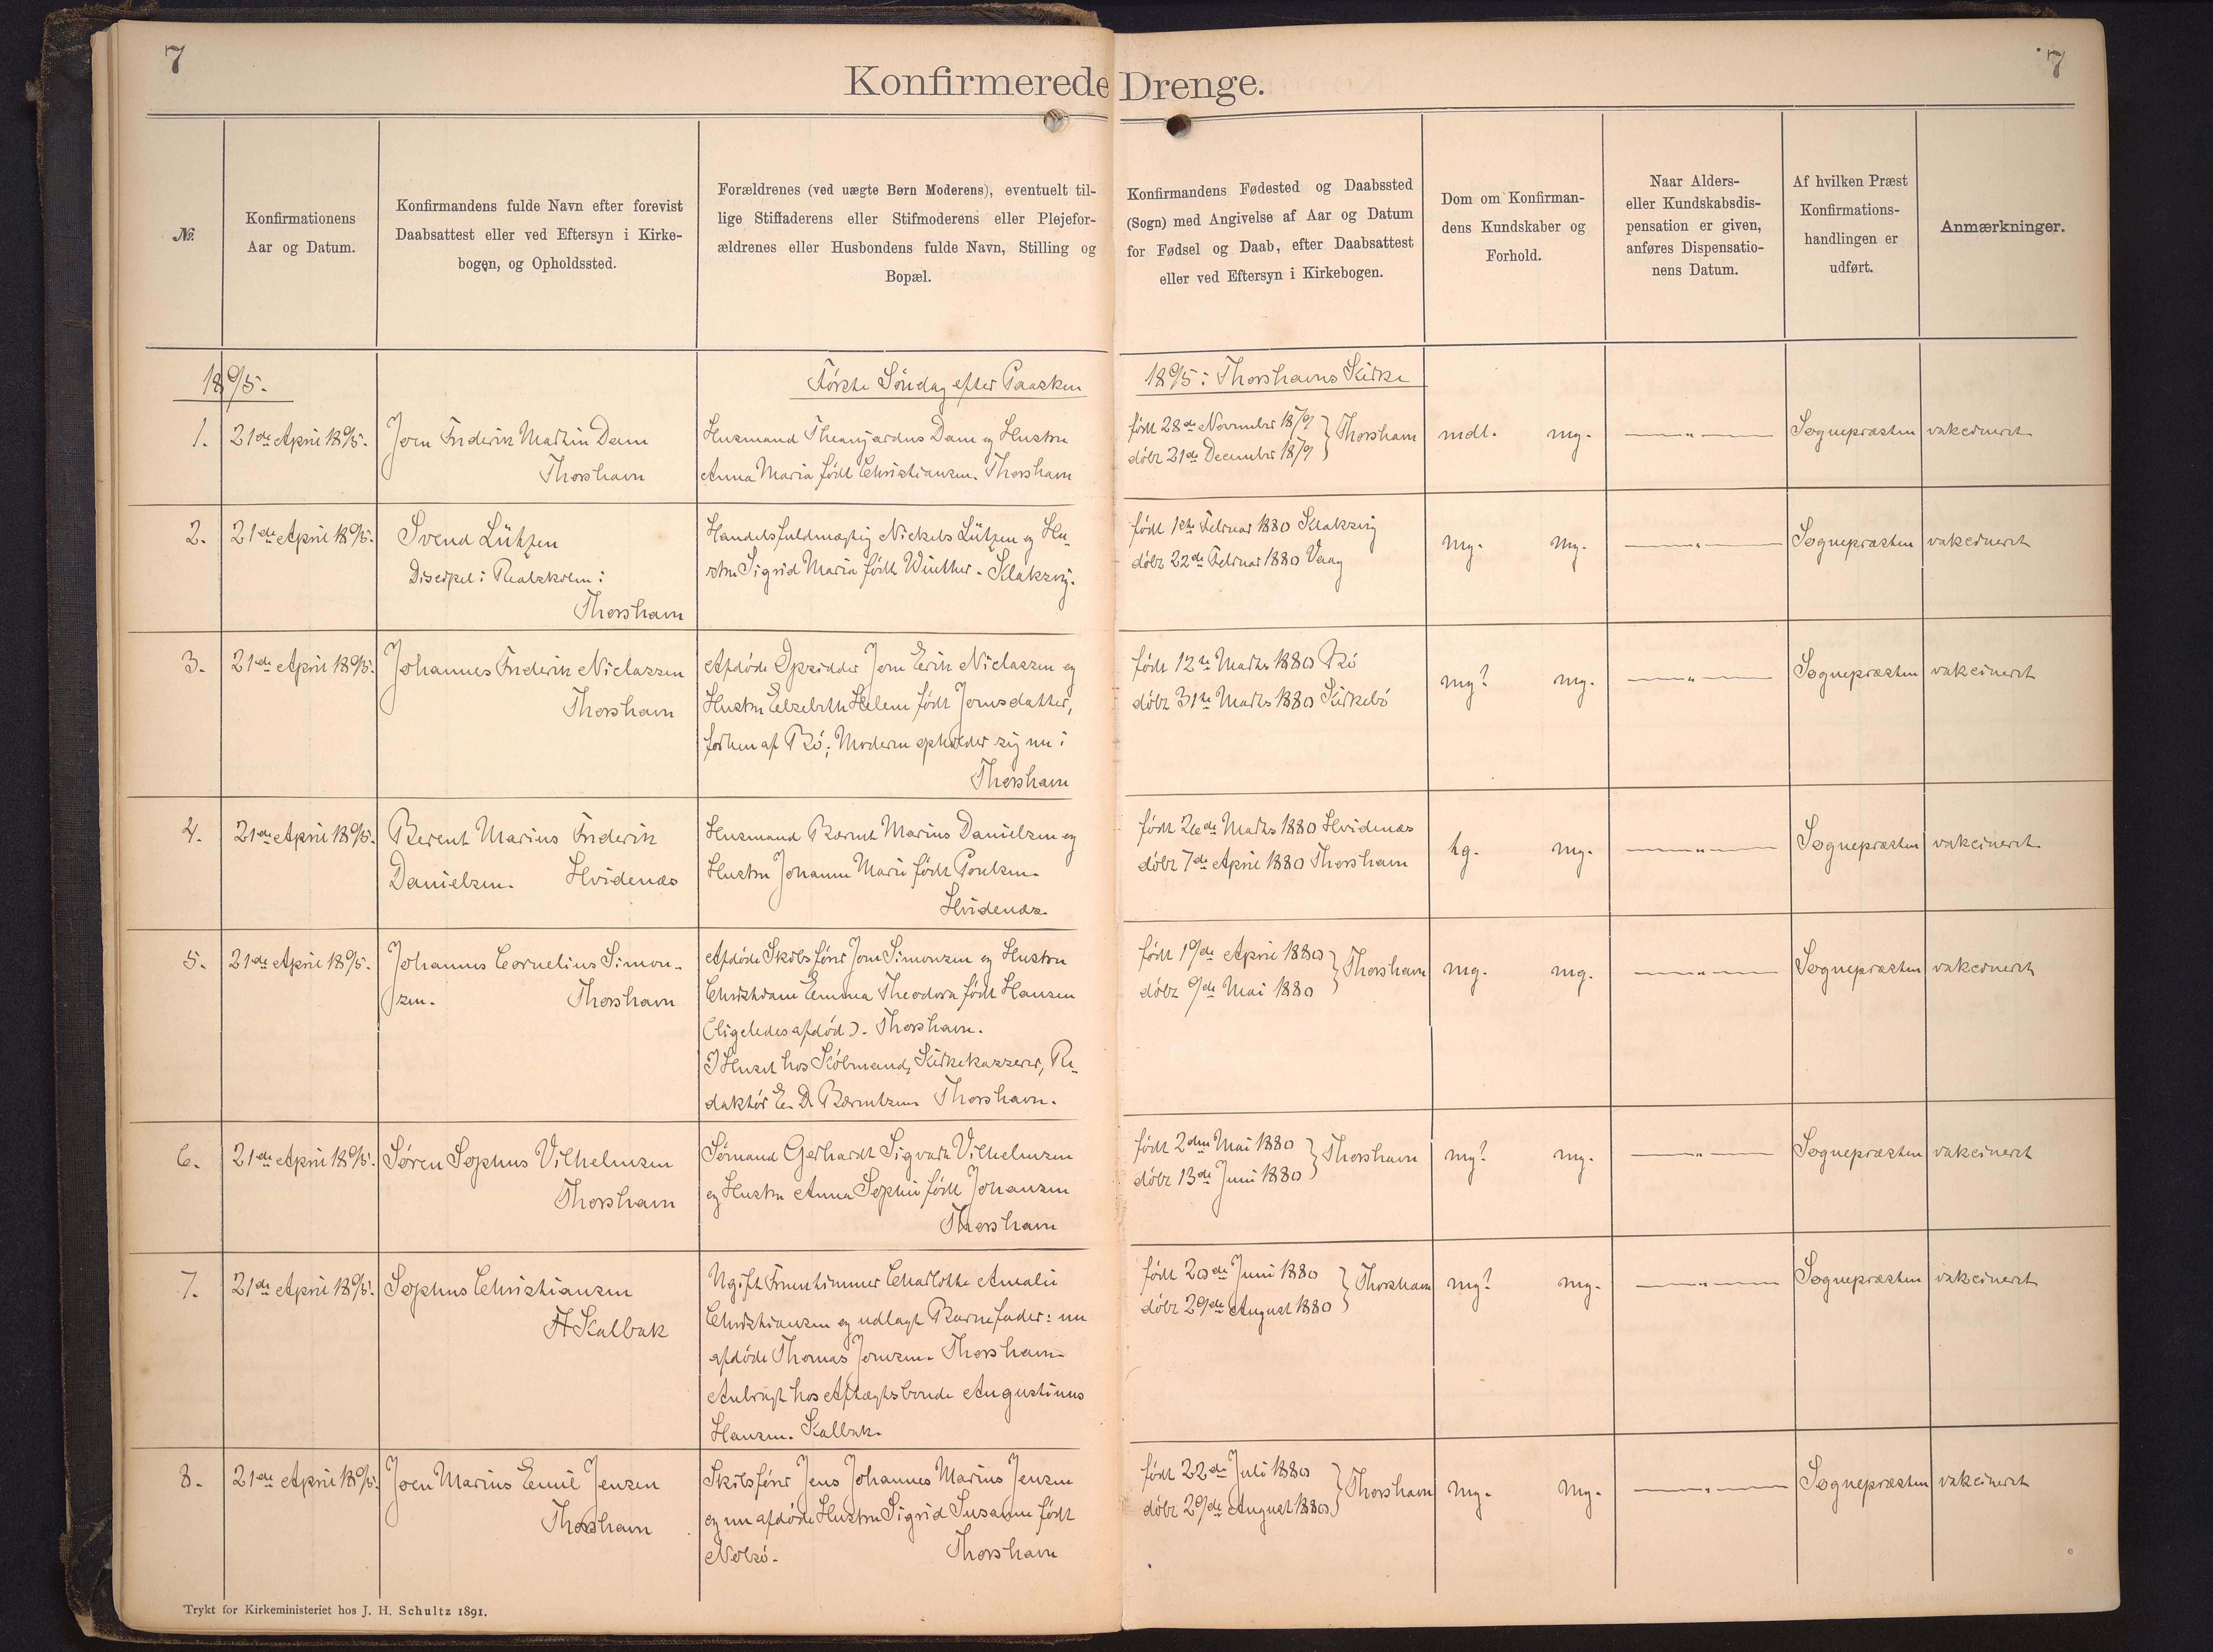 7
7
Konfirmerede Drenge.
№.
Konfirmationens
Aar og Datum.
Konfirmandens fulde Navn efter forevist
Daabsattest eller ved Eftersyn i Kirke-
bogen, og Opholdssted.
Forældrenes (ved uægte Børn Moderens), eventuelt til-
lige Stiffaderens eller Stifmoderens eller Plejefor-
ældrenes eller Husbondens fulde Navn, Stilling og
Bopæl.
Konfirmandens Fødested og Daabssted
(Sogn) med Angivelse af Aar og Datum
for Fødsel og Daab, efter Daabsattest
eller ved Eftersyn i Kirkebogen.
Dom om Konfirman-
dens Kundskaber og
Forhold.
Naar Alders-
eller Kundskabsdis-
pensation er given,
anføres Dispensatio-
nens Datum.
Af hvilken Præst
Konfirmations-
handlingen er
udført.
Anmærkninger.
1895.
Første Søndag efter Paasken
1895 i Thorshavns Kirke
1.
21de April 1895.
Joen Frederik Martin Dam
Thorshavn
Husmand Dam og Hustru
Anna Maria født Christiansen. Thorshavn
født 28de November 1879
døbt 21de December 1879
Thorshavn
mdl. mg.
— " —
Sognepræsten
vakcineret
2.
21de April 1895.
Svend Lützen
Discipel i Realskolen i
Thorshavn
Handelsfuldmægtig Nickels Lützen og Hu-
stru Sigrid Maria født Winther. Klaksvig.
født 1ste Februar 1880 Klaksvig
døbt 22de Februar 1880 Vaag
mg. mg.
— " —
Sognepræsten
vakcineret
3.
21de April 1895.
Johannes Frederik Niclassen
Thorshavn
Afdøde Opsidder Joen Eirik Niclassen og
Hustru Elsebeth Helene født Joensdatter,
forhen af Bø; Moderen opholder sig nu i
Thorshavn
født 12te Marts 1880 Bø
døbt 31te Marts 1880 Kirkebø
mg? mg.
— " —
Sognepræsten
vakcineret
4.
21de April 1895.
Berent Marius Frederik
Danielsen. Hvidenæs
Husmand Bernt Marius Danielsen og
Hustru Johanne Marie født Poulsen.
Hvidenæs.
født 26de Marts 1880 Hvidenæs
døbt 7de April 1880 Thorshavn
tg. mg.
— " —
Sognepræsten
vakcineret
5.
21de April 1895.
Johannes Cornelius Simon-
sen. Thorshavn
Afdøde Skibsfører Joen Simonsen og Hustru
Christiane Emma Theodora født Hansen
(ligeledes afdød). Thorshavn.
I Huset hos Købmand, Kirkekasserer, Re-
daktør E. D. Bærentsen Thorshavn.
født 19de April 1880
døbt 9de Mai 1880
Thorshavn
mg. mg.
— " —
Sognepræsten
vakcineret
6.
21de April 1895.
Søren Sophus Vilhelmsen
Thorshavn
Sømand Gerhardt Sigvart Vilhelmsen
og Hustru Anna Sophie født Johansen
Thorshavn
født 2den Mai 1880
døbt 13de Juni 1880
Thorshavn
mg? mg.
— " —
Sognepræsten
vakcineret
7.
21de April 1895.
Sophus Christiansen
Kalbak
Ugift Fruentimmer Charlotte Amalie
Christiansen og udlagt Barnefader: nu
afdøde Thomas Joensen. Thorshavn.
Anbragt hos Aftægtsbonde Augustinus
Hansen. Kalbak.
født 20de Juni 1880
døbt 29de August 1880
Thorshavn
mg? mg.
— " —
Sognepræsten
vakcineret
8.
21de April 1895.
Joen Marius Emil Jensen
Thorshavn
Skibsfører Jens Johannes Marius Jensen
og nu afdøde Hustru Sigrid Susanne født
Nolsø. Thorshavn
født 22de Juli 1880
døbt 29de August 1880
Thorshavn
mg. mg.
— " —
Sognepræsten
vakcineret
Trykt for Kirkeministeriet hos J. H. Schultz 1891.